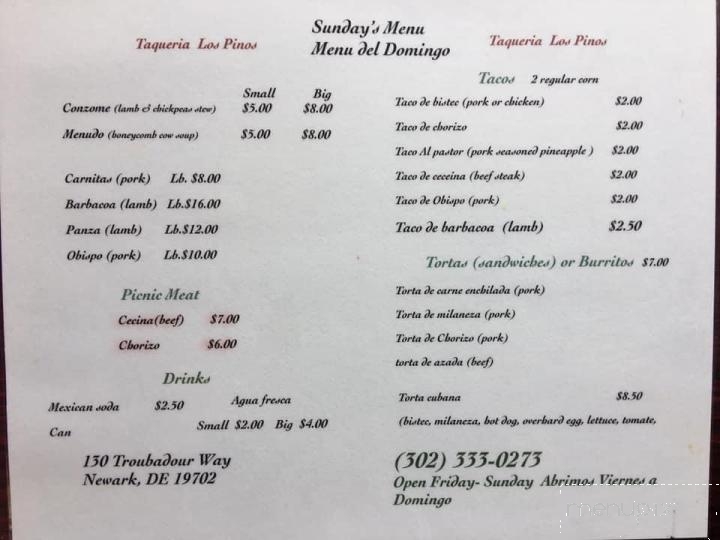 Sunday's Menu
Menu del Domingo
Taqueria Los Pinos
Small Big
Conzome (lamb & chickpeas stew) $5.00 $8.00
Menudo (honeycomb cow soup) $5.00 $8.00
Carnitas (pork) Lb. $8.00
Barbacoa (lamb) Lb.$16.00
Panza (lamb) Lb.$12.00
Obispo (pork) Lb.$10.00
Picnic Meat
Cecina(beef) $7.00
Chorizo $6.00
Drinks
Mexican soda $2.50 Agua fresca
Can Small $2.00 Big $4.00
130 Troubadour Way
Newark, DE 19702
Taqueria Los Pinos
Tacos 2 regular corn
Taco de bistec (pork or chicken) $2.00
Taco de chorizo $2.00
Taco Al pastor (pork seasoned pineapple ) $2.00
Taco de ceceina (beef steak) $2.00
Taco de Obispo (pork) $2.00
Taco de barbacoa (lamb) $2.50
Tortas (sandwiches) or Burritos $7.00
Torta de carne enchilada (pork)
Torta de milaneza (pork)
Torta de Chorizo (pork)
torta de azada (beef)
Torta cubana $8.50
(bistec, milaneza, hot dog, overhard egg, lettuce, tomate,
(302) 333-0273
Open Friday- Sunday Abrimos Viernes a
Domingo